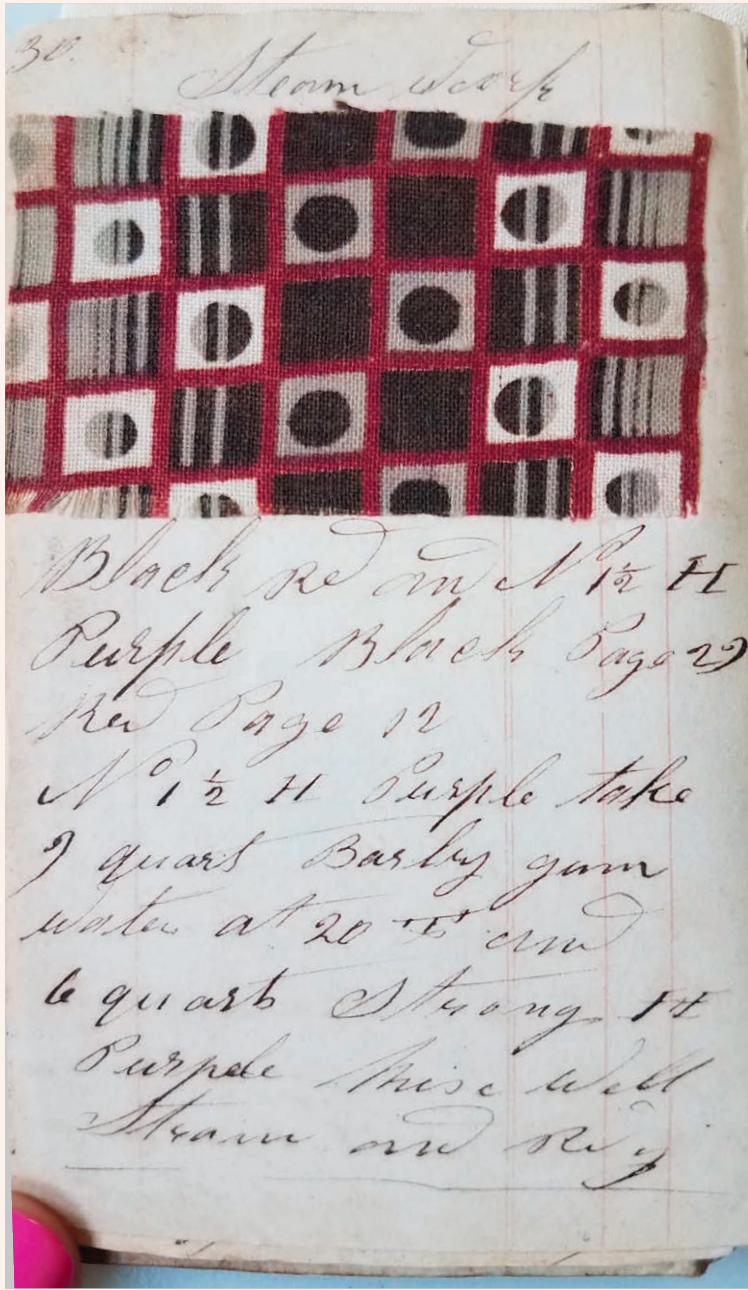 30.
Steam Work
Black Red and No 1½ H
Purple Black Page 29
Red Page 12
No 1½ H Purple take
9 quart Barley gum
water at 20 T and
6 quart Strong H
Purple Mix Well
Steam and